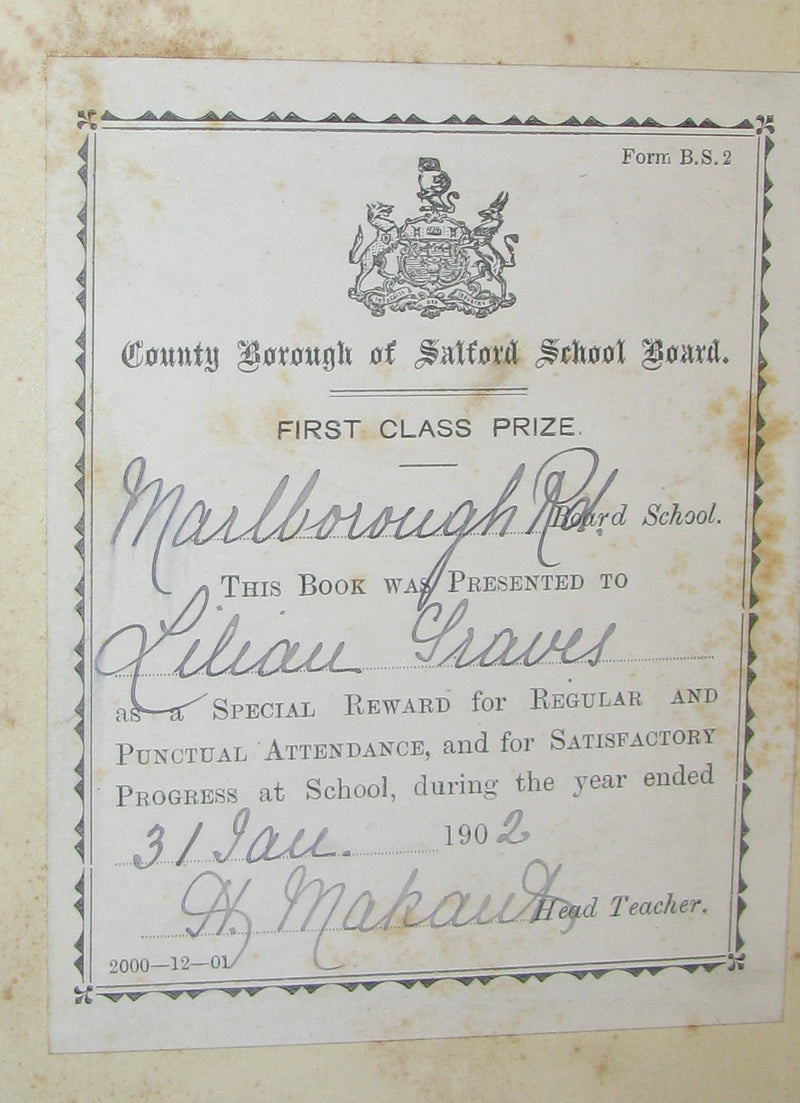 Form B.S.2
County Borough of Salford School Board.
FIRST CLASS PRIZE.
Marlborough Rd. Board School.
THIS BOOK WAS PRESENTED TO
Lilian Graves
as a SPECIAL REWARD for REGULAR AND
PUNCTUAL ATTENDANCE, and for SATISFACTORY
PROGRESS at School, during the year ended
31 Jan. 1902
H. Makant Head Teacher.
2000—12—01